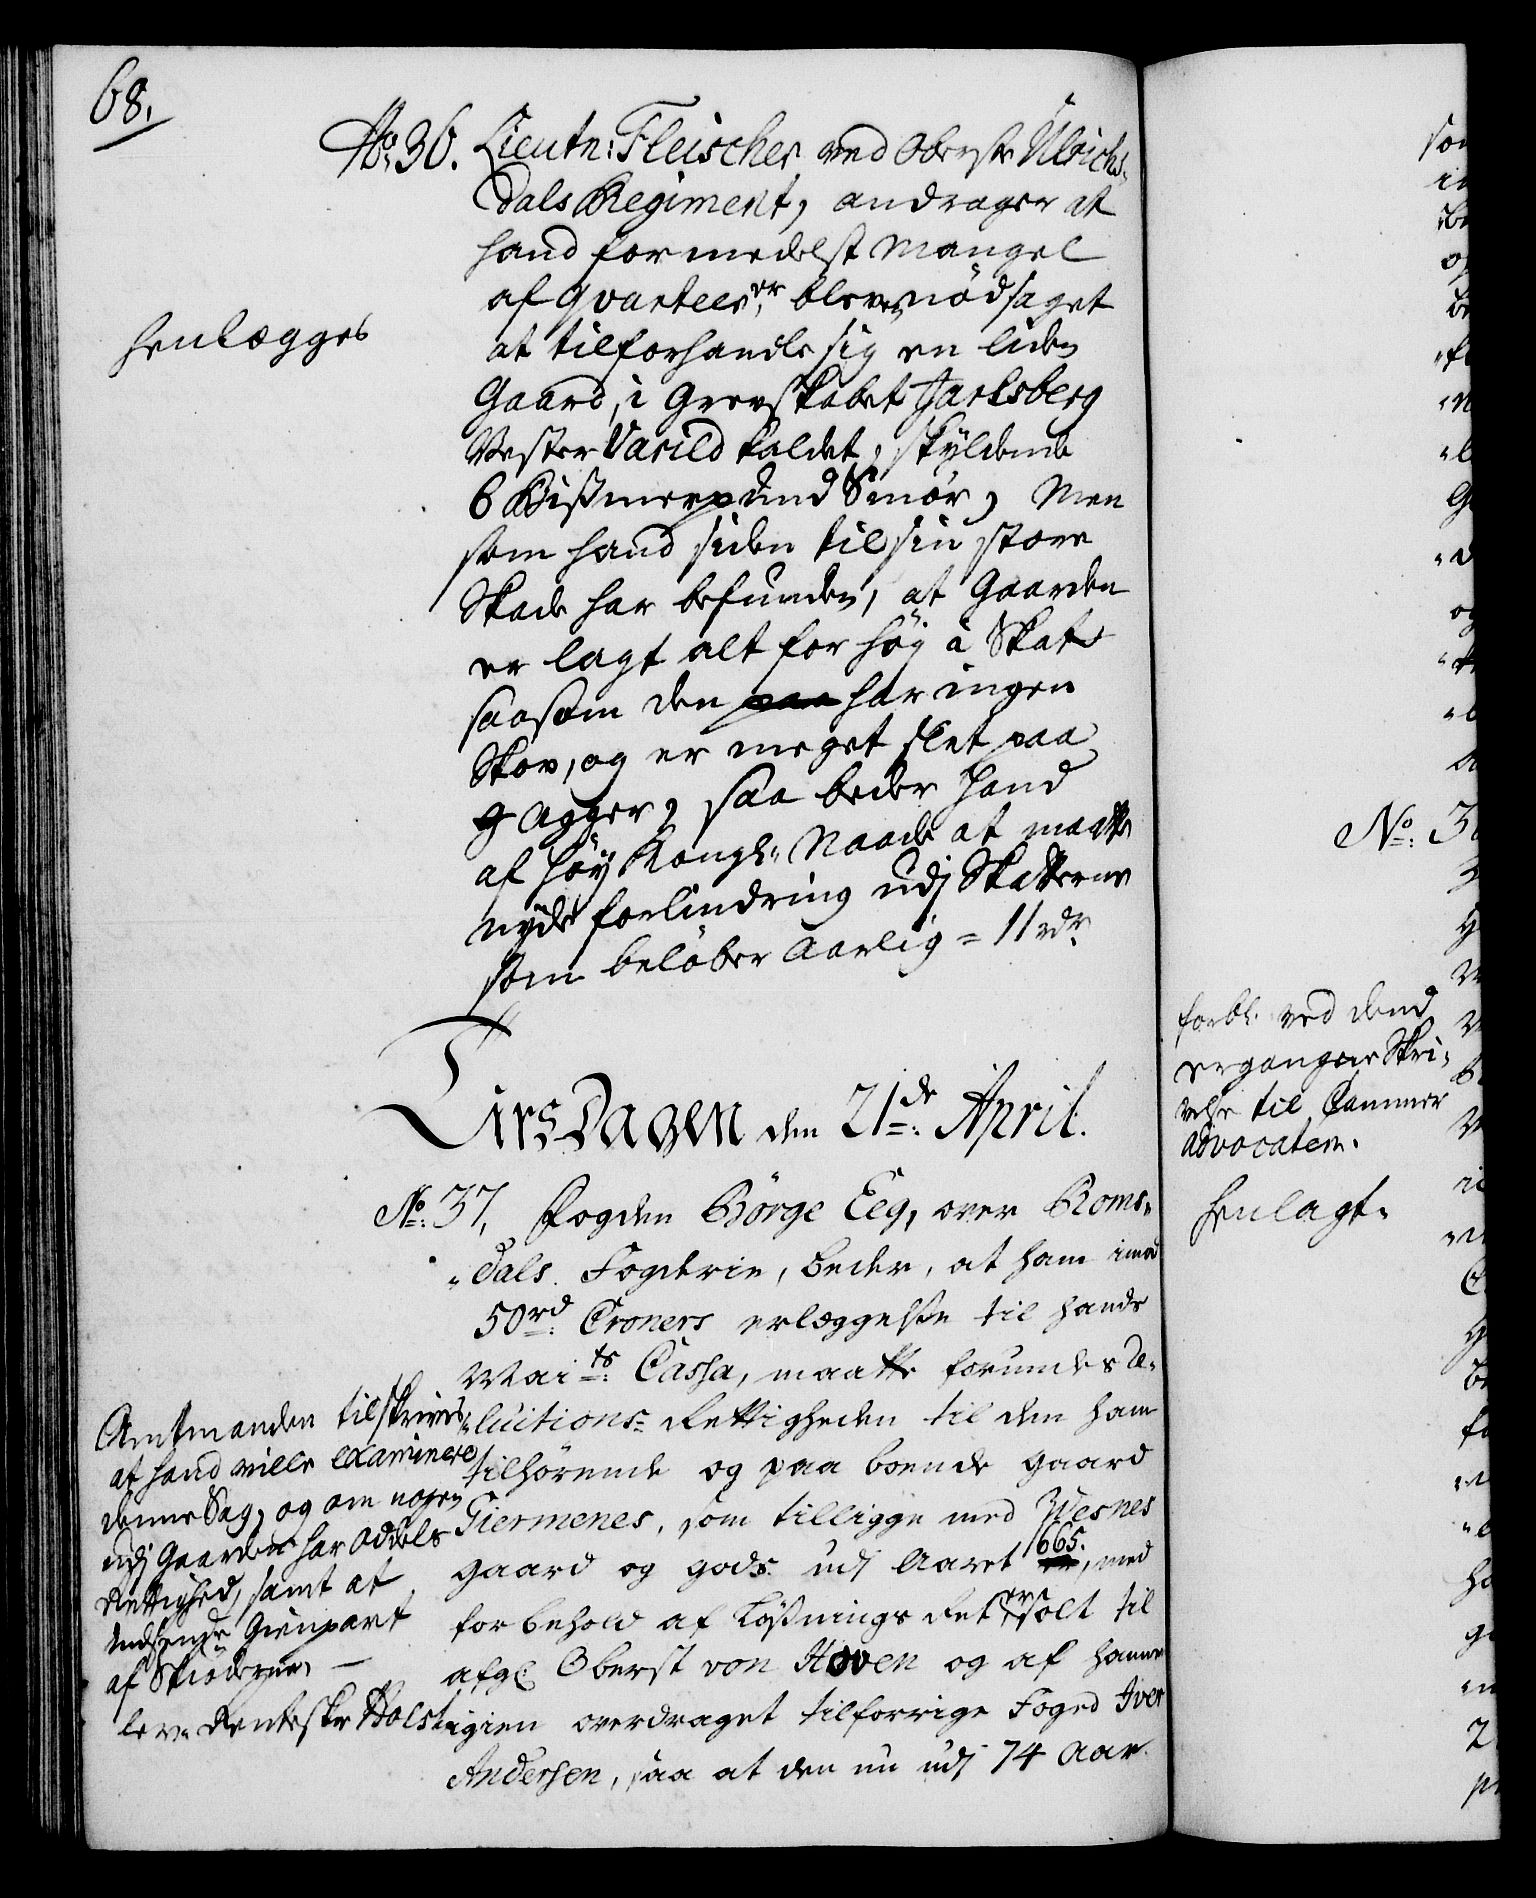 68.
No. 36. Lieutn: Fleischer ved Oberste Ulrichs-
dals Regiment, andrager at
hand formedelst Mangel
af qvarteer, er bleven nödsaget
at tilforhandle sig en liden
Gaard, i Grevskabet Jarlsberg
Vester Varild kaldet, skyldende
6 Bissmerpund Smör, Men
som hand siden til sin store
Skade har befunden, at Gaarden
er lagt alt for höy á Skat
saasom den paa har ingen
Skov, og er meget slet paa
Agger, saa beder Hand
af höy Kongl. Naade at maatte
nyde forlindring udj Skatterne
som belöber Aarlig = 11 rdr.
henlægges
Tirsdagen den 21de April.
No: 37, Fogden Börge Eeg, over Roms-
dals Fogderie, beder, at ham imod
50 rd Croners erlæggelse til hands
Maits: Cassa, maatte forundes Re-
luitions-Rettigheden til den ham
tilhörende og paa boende gaard
Giermenes, som tilligge med Wesnes
gaard og gods udj Aaret 1665, med
forbehold af Lösnings Ret er solt til
afg. Oberst von Hoven og af hanne
igien overdraget til forrige Foged Iver
Andersen, saa at den nu udj 74 Aar
Amtmanden tilskrives
at hand ville examinere
denne Sag, og om nogen
udj Gaarden har Oddels
Rettighed, samt at
indsende Gienpart
af Skiöderne,
lev. Renteskr Holst
forbl. ved dend
ergangne Skri-
velse til Cammer
advocaten.
henlagt.
No: 3